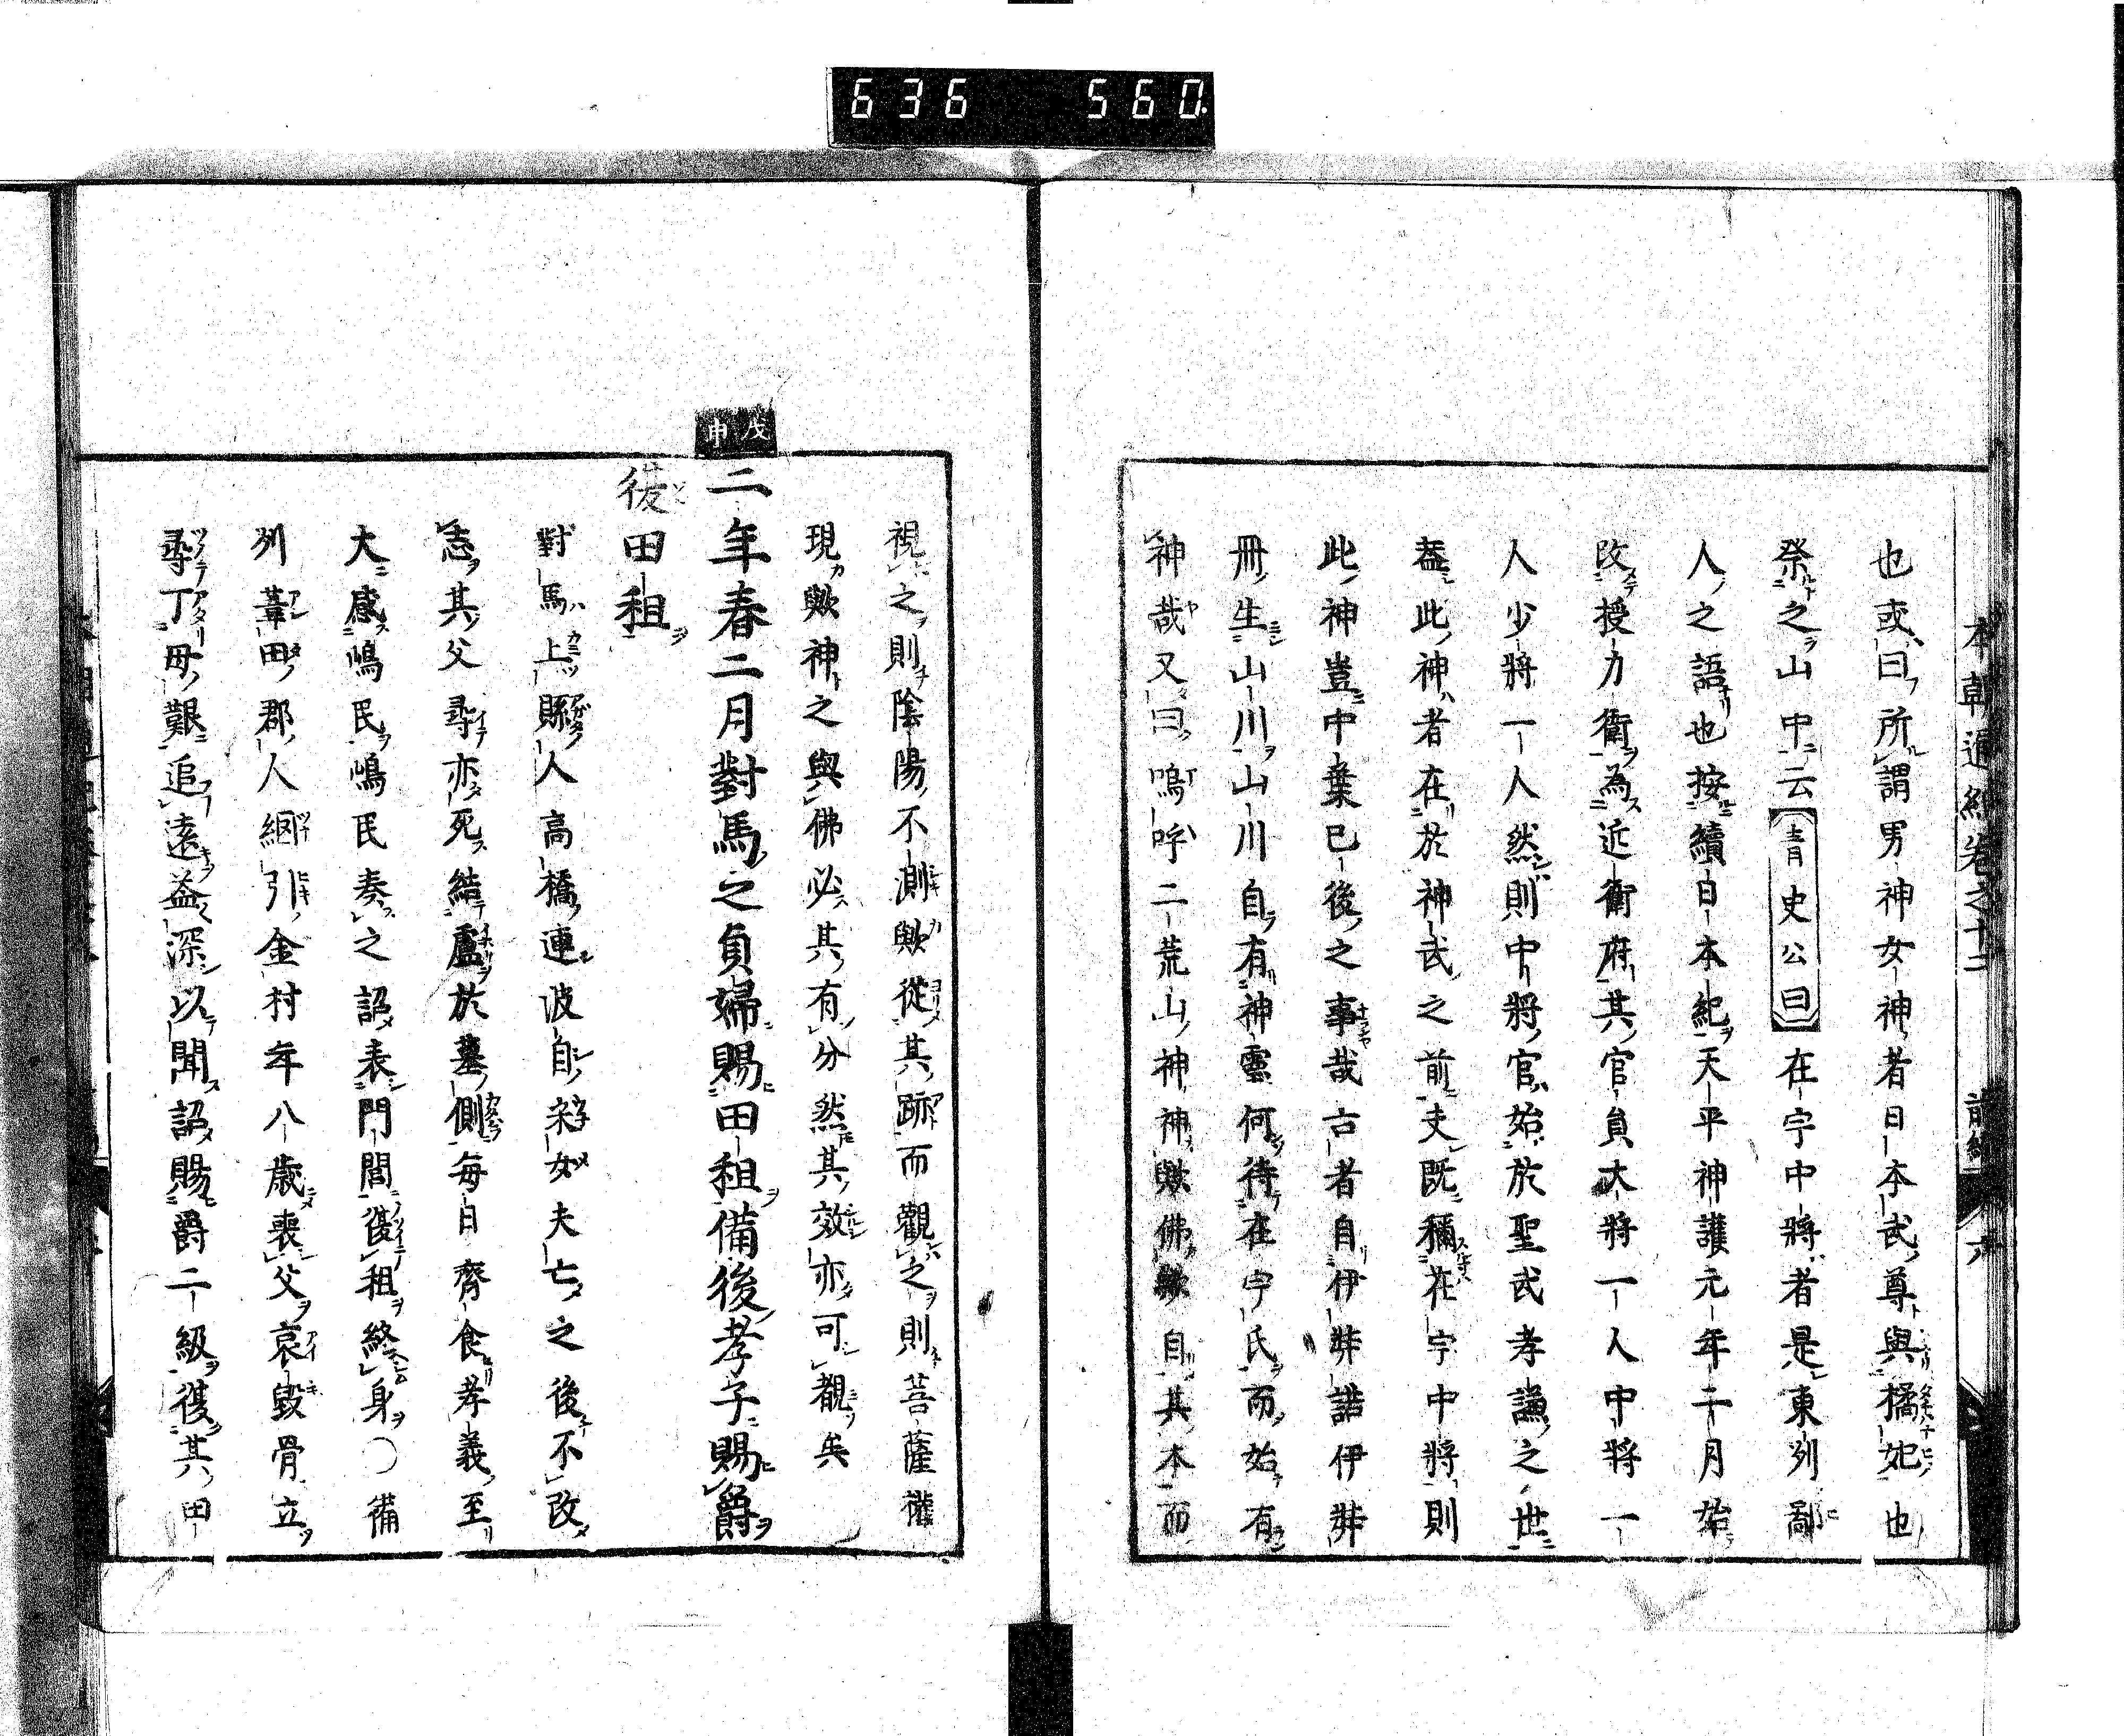 636 560
本朝通紀卷之十二 前編 六
也或曰所謂男神女神者日本武尊與橘妃也
祭之山中云青史公曰在宇中將者是東列鄙
人之語也按續日本紀天平神護元年二月始
改授力衛為近衛府其官員大將一人中將一
人少將一人然則中將官始於聖武孝謙之世
蓋此神者在於神武之前夫既稱在宇中將則
此神豈中葉已後之事哉古者自伊弉諾伊弉
冊生山川山川自有神靈何待在宇氏而始有
神哉又曰嗚呼二荒山神神歟佛歟自其本而
視之則陰陽不測歟從其跡而觀之則菩薩權
現歟神之與佛必其有分然其效亦可覩矣
戊申
二年春二月對馬之貞婦賜田租備後孝子賜爵
復田租
對馬上縣人高橋連波自采女夫亡之後不改
志其父尋亦死結廬於墓側每日齊食孝義至
大感嶋民嶋民奏之詔表門閭復租終身〇備
列葦田郡人網引金村年八歲喪父哀毀骨立
尋丁母艱追遠益深以聞詔賜爵二級復其田